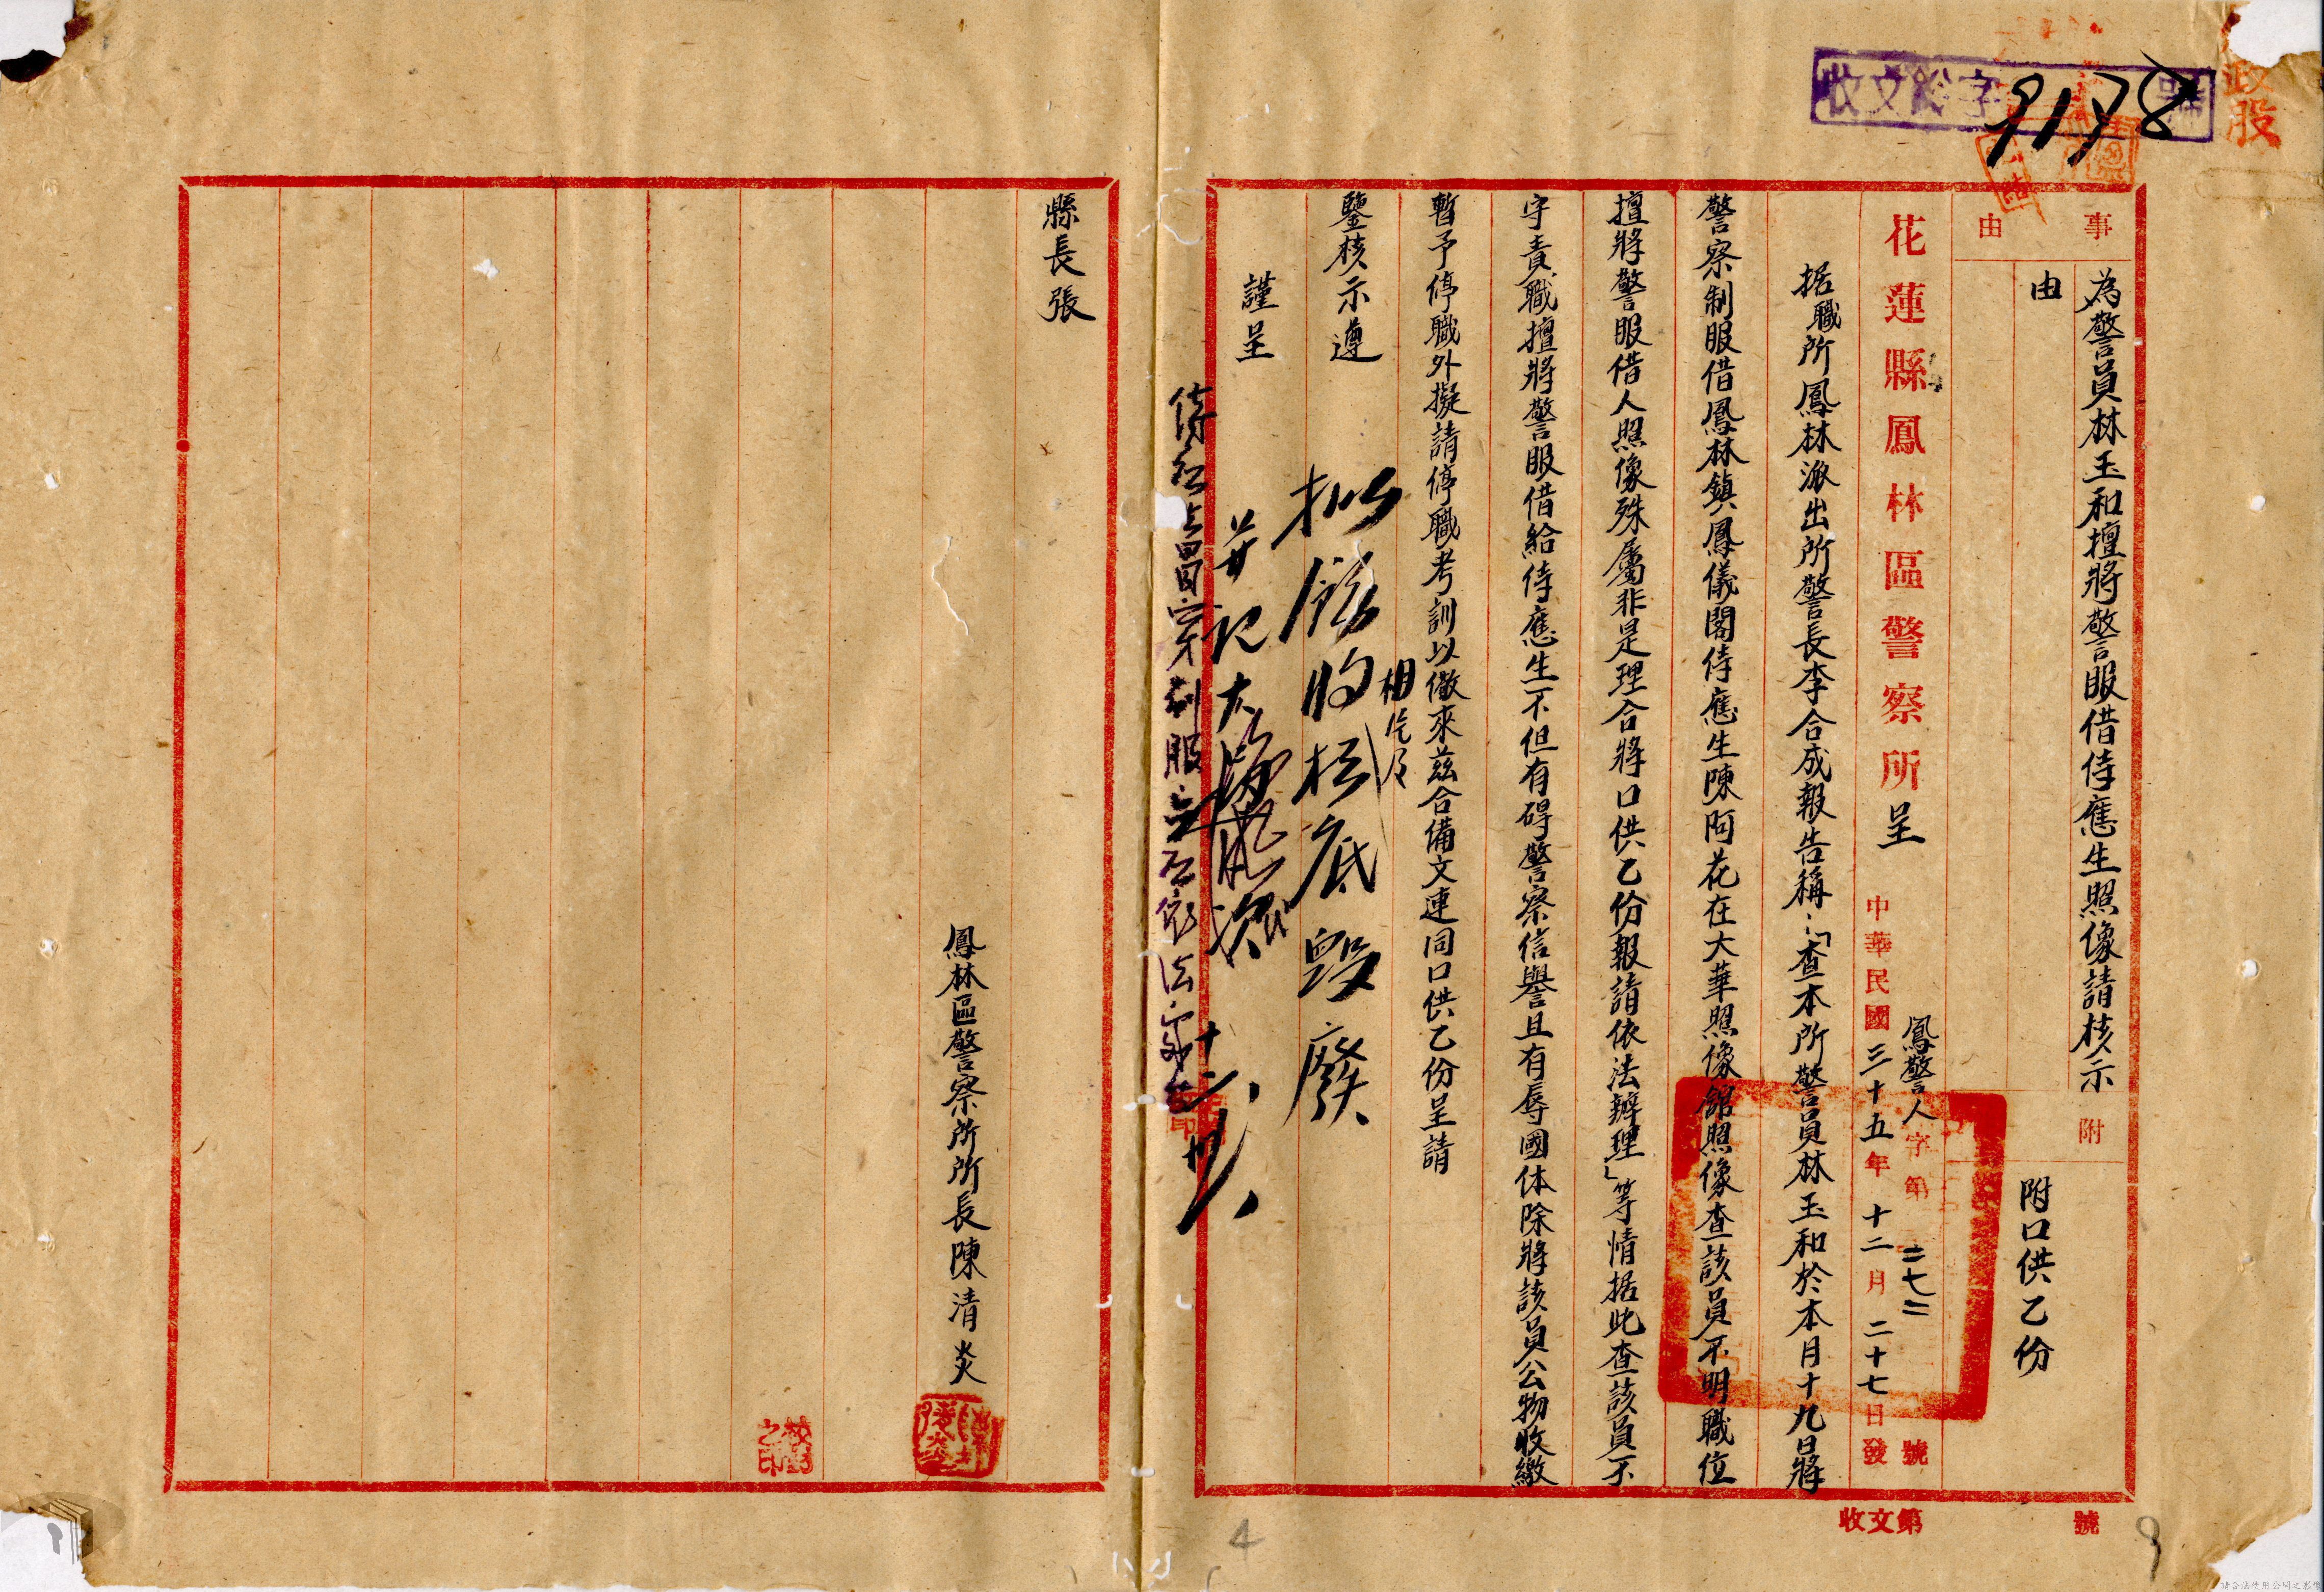 政股
收文 字 9178 號
事由
為警員林玉和擅將警服借侍應生照像請核示
由
附
附口供乙份
花蓮縣鳳林區警察所呈
鳳警人字第二七二號
中華民國三十五年十二月二十七日發
据職所鳳林派出所警長李合成報告稱:「查本所警員林玉和於本月十九日將
警察制服借鳳林鎮鳳儀閣侍應生陳阿花在大華照像館照像查該員不明職位
擅將警服借人照像殊屬非是理合將口供乙份報請依法辦理」等情据此查該員不
守責職擅將警服借給侍應生不但有碍警察信譽且有辱國体除將該員公物收繳
暫予停職外擬請停職考訓以儆來茲合備文連同口供乙份呈請
鑒核示遵
謹呈
相片及
底毀廢
并記大過
制服
縣長張
鳳林區警察所所長陳清炎
收文第 號
4
9